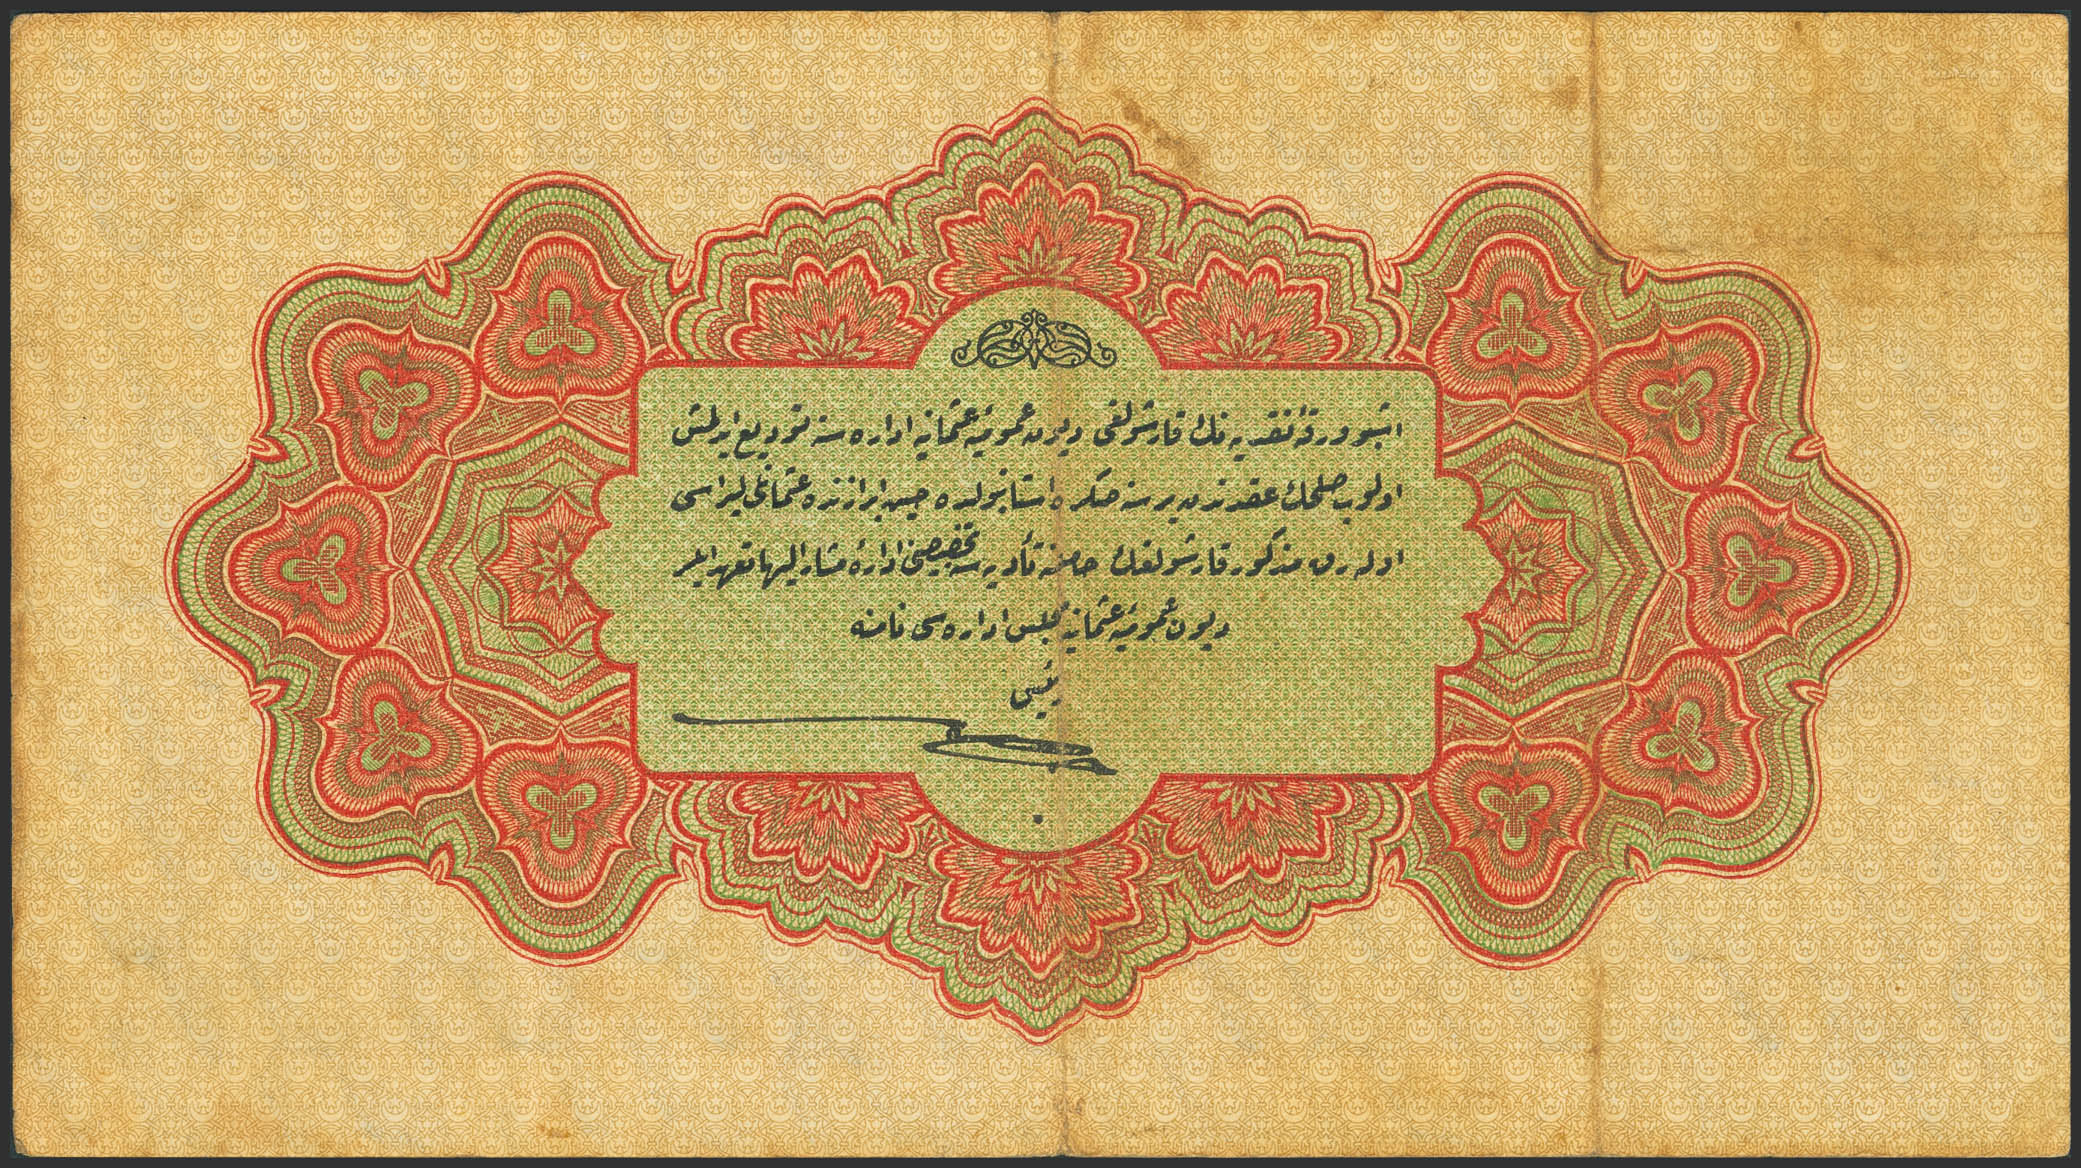 اشبو ورقۀ نقدیه نك قارشولغی دیون عمومیۀ عثمانیه اداره سنه تودیع ایدلمش
اولوب صلحك عقدندن بر سنه صكره استانبولده حین ابرازنده عثمانلی لیراسی
اوله رق مذكور قارشولغك حاملنه تأدیه سنه تخصیصنی ادارۀ مشار الیها تعهد ایلر
دیون عمومیۀ عثمانیه مجلس اداره سی نامنه
رئیسی